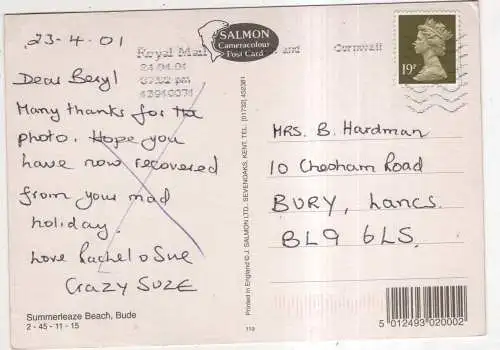 23-4.01
Dear Beryl
Many thanks for the
photo. Hope you
have now recovered
from your mad
holiday.
Love Rachel o Sue
CRAZY SUZE
Summerleaze Beach, Bude
2 - 45 - 11 - 15
SALMON
Cameracolour
Post Card
Royal Mail
and Cornwall
24.04.01
07:02 pm
43940074
19P
Printed in England © J. SALMON LTD., SEVENOAKS, KENT, TEL. (01732) 452381
MRS. B. Hardman
10 Chesham Road
BURY, Lancs.
BL9 6LS.
119
5 012493 020002